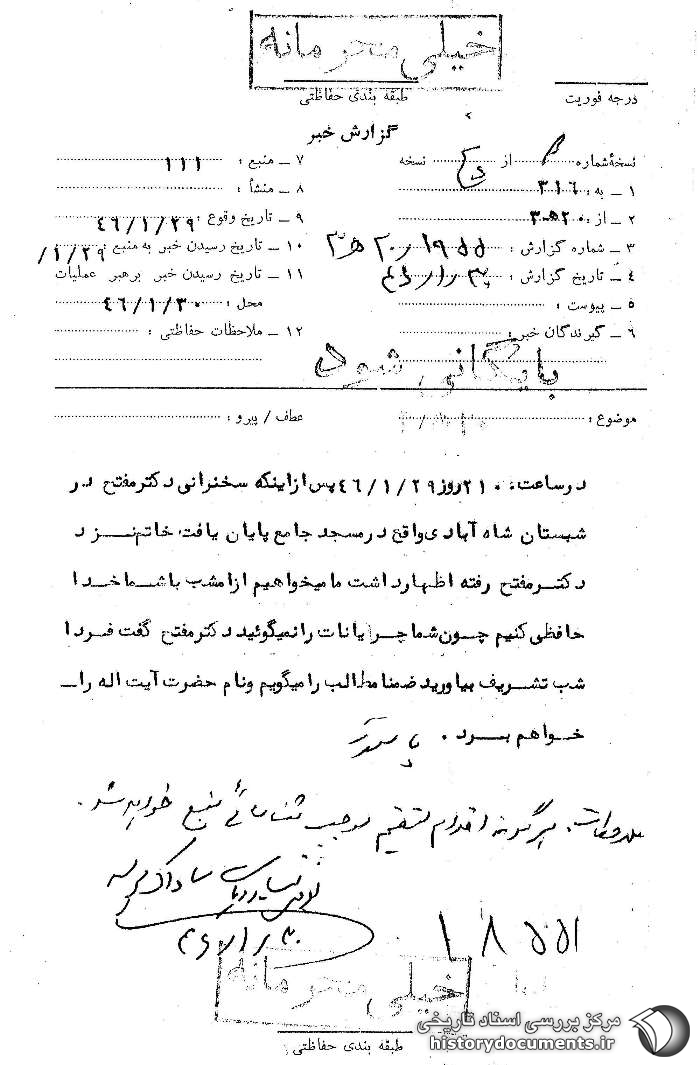 خیلی محرمانه
طبقه بندی حفاظتی
درجه فوریت
گزارش خبر
نسخهٔ شماره از نسخه
۱ ــ به : ۳۱۶
۲ ــ از : ۲۰ ه ۳
۳ ــ شماره گزارش :
۴ ــ تاریخ گزارش :
۵ ــ پیوست :
۶ ــ گیرندگان خبر :
۷ ــ منبع : ۱۱۱
۸ ــ منشأ :
۹ ــ تاریخ وقوع : ۴۶/۱/۲۹
۱۰ ــ تاریخ رسیدن خبر به منبع : ۱/۲۹/
۱۱ ــ تاریخ رسیدن خبر برهبر عملیات
محل : ۴۶/۱/۳۰
۱۲ ــ ملاحظات حفاظتی :
بایگانی شود
موضوع :
عطف / پیرو :
درساعت ۲۱۰۰ روز ۴۶/۱/۲۹ پس ازاینکه سخنرانی دکترمفتح در
شبستان شاه آبادی واقع درمسجد جامع پایان یافت خاتم نزد
دکترمفتح رفته اظهارداشت مامیخواهیم ازامشب باشماخدا
حافظی کنیم چون شماجریانات رانمیگوئید دکترمفتح گفت فردا
شب تشریف بیاورید ضمنامطالب رامیگویم ونام حضرت آیت اله راــ
خواهم برد .
ملاحظات. هرگونه اقدام مستقیم موجب شناسائی منبع خواهد شد.
ساواک
خیلی محرمانه
طبقه بندی حفاظتی
مرکز بررسی اسناد تاریخی
historydocuments.ir